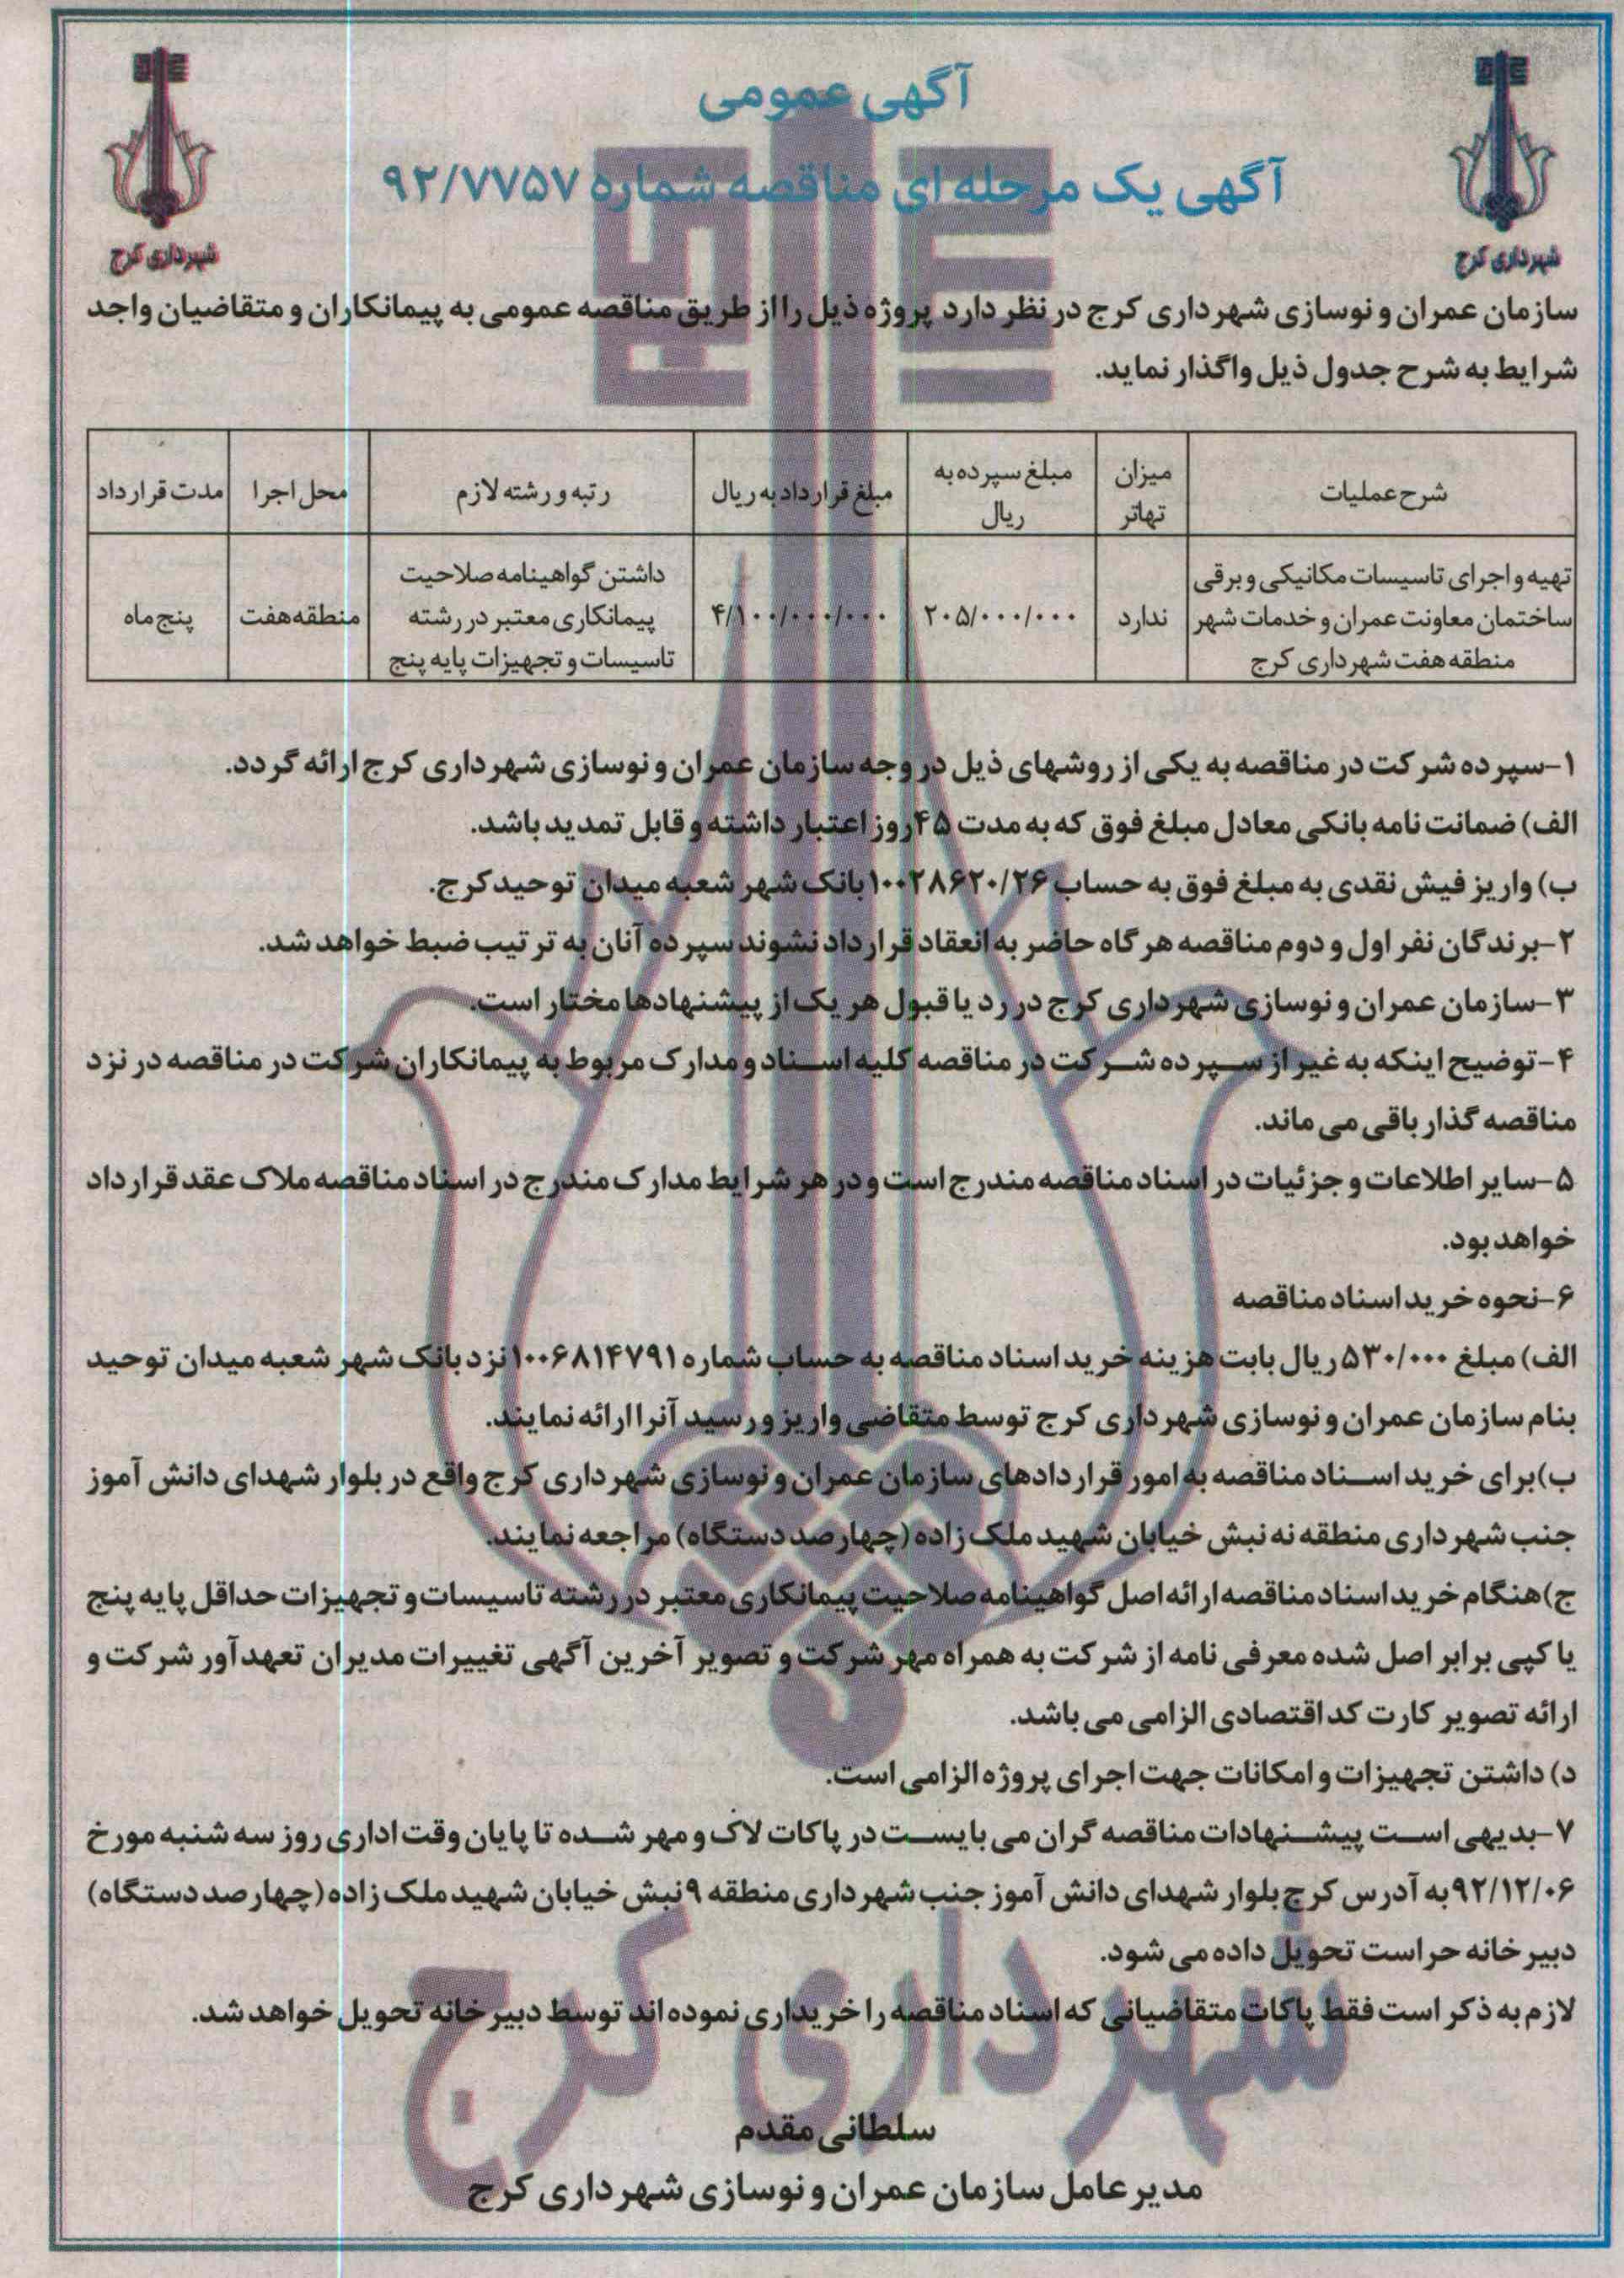 آگهی عمومی
آگهی یک مرحله ای مناقصه شماره ۹۲/۷۷۵۷
شهرداری کرج
شهرداری کرج
سازمان عمران و نوسازی شهرداری کرج در نظر دارد پروژه ذیل را از طریق مناقصه عمومی به پیمانکاران و متقاضیان واجد
شرایط به شرح جدول ذیل واگذار نماید.
شرح عملیات
میزان
تهاتر
مبلغ سپرده به
ریال
مبلغ قرارداد به ریال
رتبه و رشته لازم
محل اجرا
مدت قرارداد
تهیه و اجرای تاسیسات مکانیکی و برقی
ساختمان معاونت عمران و خدمات شهر
منطقه هفت شهرداری کرج
ندارد
۲۰۵/۰۰۰/۰۰۰
۴/۱۰۰/۰۰۰/۰۰۰
داشتن گواهینامه صلاحیت
پیمانکاری معتبر در رشته
تاسیسات و تجهیزات پایه پنج
منطقه هفت
پنج ماه
۱-سپرده شرکت در مناقصه به یکی از روشهای ذیل در وجه سازمان عمران و نوسازی شهرداری کرج ارائه گردد.
الف) ضمانت نامه بانکی معادل مبلغ فوق که به مدت ۴۵روز اعتبار داشته و قابل تمدید باشد.
ب) واریز فیش نقدی به مبلغ فوق به حساب ۱۰۰۲۸۶۲۰/۲۶بانک شهر شعبه میدان توحید کرج.
۲-برندگان نفر اول و دوم مناقصه هر گاه حاضر به انعقاد قرارداد نشوند سپرده آنان به ترتیب ضبط خواهد شد.
۳-سازمان عمران و نوسازی شهرداری کرج در رد یا قبول هر یک از پیشنهادها مختار است.
۴-توضیح اینکه به غیر از سپرده شرکت در مناقصه کلیه اسناد و مدارک مربوط به پیمانکاران شرکت در مناقصه در نزد
مناقصه گذار باقی می ماند.
۵-سایر اطلاعات و جزئیات در اسناد مناقصه مندرج است و در هر شرایط مدارک مندرج در اسناد مناقصه ملاک عقد قرارداد
خواهد بود.
۶-نحوه خرید اسناد مناقصه
الف) مبلغ ۵۳۰/۰۰۰ریال بابت هزینه خرید اسناد مناقصه به حساب شماره ۱۰۰۶۸۱۴۷۹۱نزد بانک شهر شعبه میدان توحید
بنام سازمان عمران و نوسازی شهرداری کرج توسط متقاضی واریز و رسید آنرا ارائه نمایند.
ب)برای خرید اسناد مناقصه به امور قراردادهای سازمان عمران و نوسازی شهرداری کرج واقع در بلوار شهدای دانش آموز
جنب شهرداری منطقه نه نبش خیابان شهید ملک زاده (چهارصد دستگاه) مراجعه نمایند.
ج)هنگام خرید اسناد مناقصه ارائه اصل گواهینامه صلاحیت پیمانکاری معتبر در رشته تاسیسات و تجهیزات حداقل پایه پنج
یا کپی برابر اصل شده معرفی نامه از شرکت به همراه مهر شرکت و تصویر آخرین آگهی تغییرات مدیران تعهدآور شرکت و
ارائه تصویر کارت کد اقتصادی الزامی می باشد.
د) داشتن تجهیزات و امکانات جهت اجرای پروژه الزامی است.
۷-بدیهی است پیشنهادات مناقصه گران می بایست در پاکات لاک و مهر شده تا پایان وقت اداری روز سه شنبه مورخ
۹۲/۱۲/۰۶به آدرس کرج بلوار شهدای دانش آموز جنب شهرداری منطقه ۹نبش خیابان شهید ملک زاده (چهارصد دستگاه)
دبیرخانه حراست تحویل داده می شود.
لازم به ذکر است فقط پاکات متقاضیانی که اسناد مناقصه را خریداری نموده اند توسط دبیرخانه تحویل خواهد شد.
شهرداری کرج
سلطانی مقدم
مدیرعامل سازمان عمران و نوسازی شهرداری کرج